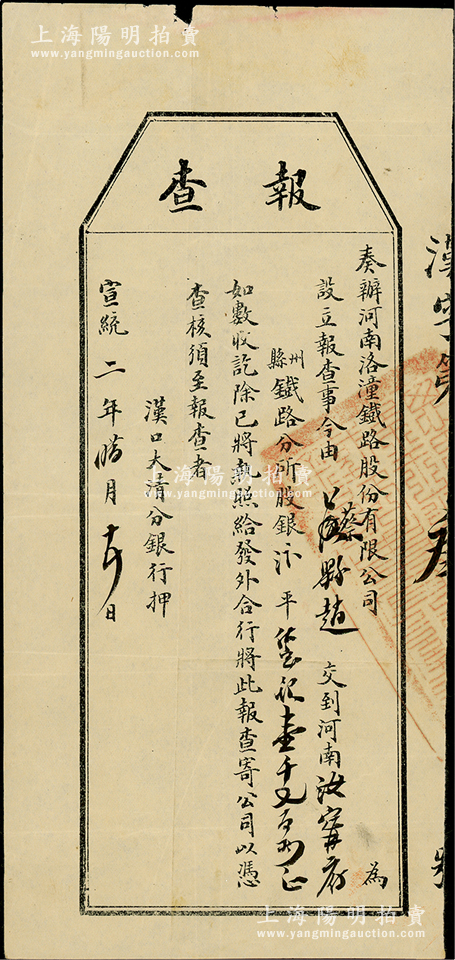 上海陽明拍賣
www.yangmingauction.com
報查
為
奏辦河南洛潼鐵路股份有限公司
設立報查事今由 上蔡縣趙 交到河南汝甯府
州縣鐵路分所股銀 平 壹千 百兩正
如數收訖除已將執照給發外合行將此報查寄公司以憑
查核須至報查者
漢口大清分銀行押
宣統二年 月 日
上海陽明拍賣
www.yangmingauction.com
上海陽明拍賣
www.yangmingauction.com